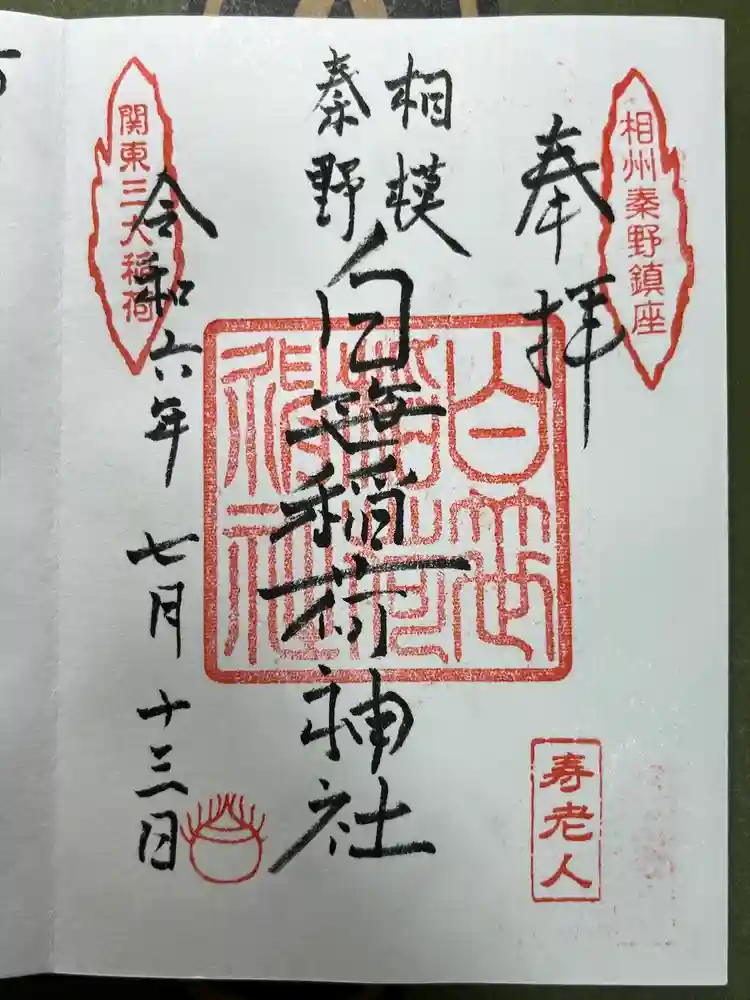 相州秦野鎮座
奉拝
寿老人
相模
秦野
白笹稲荷神社
白笹稲荷神社
関東三大稲荷
令和六年七月十三日